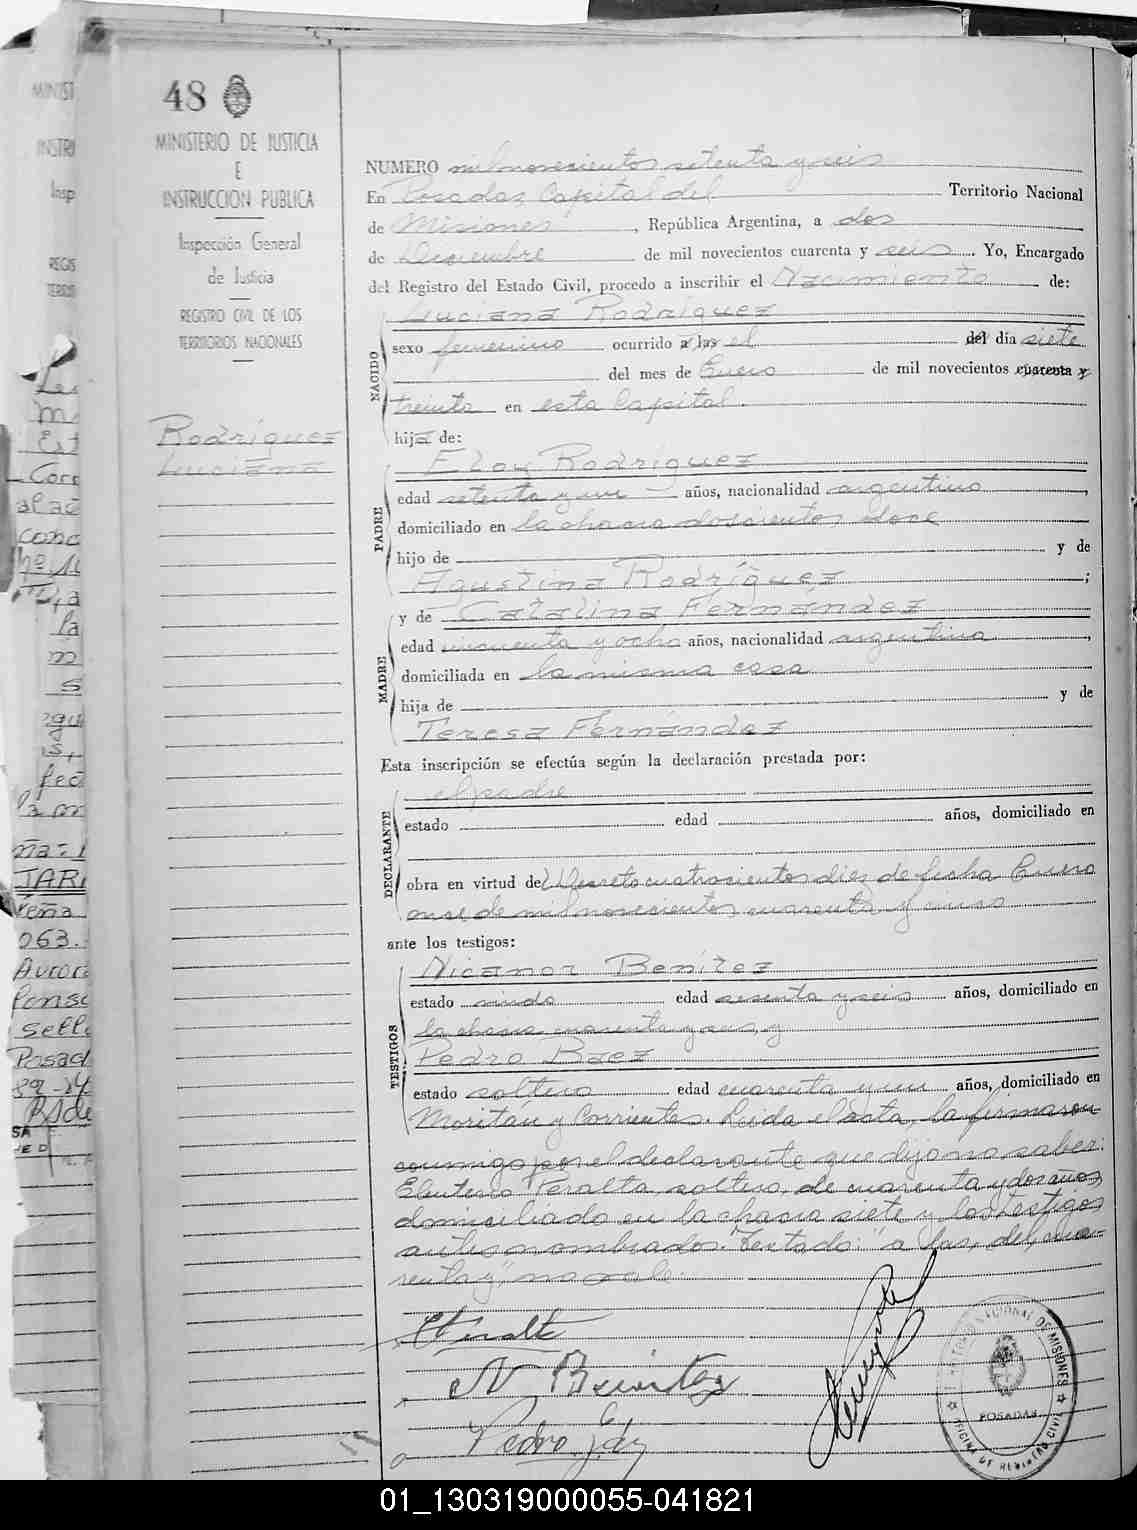 48
MINISTERIO DE JUSTICIA
E
INSTRUCCION PUBLICA
Inspección General
de Justicia
REGISTRO CIVIL DE LOS
TERRITORIOS NACIONALES
Rodríguez
Luciana
NUMERO mil novecientos setenta y seis
En Posadas, Capital del Territorio Nacional
de Misiones, República Argentina, a dos
de Diciembre de mil novecientos cuarenta y seis. Yo, Encargado
del Registro del Estado Civil, procedo a inscribir el Nacimiento de:
NACIDO
Luciana Rodríguez
sexo femenino ocurrido a las el del día siete
del mes de Enero de mil novecientos cuarenta y
treinta en esta Capital.
hija de:
PADRE
Eloy Rodríguez
edad setenta y un años, nacionalidad argentino,
domiciliado en la chacra doscientos doce
hijo de y de
Agustina Rodríguez;
MADRE
y de Catalina Fernández
edad cincuenta y ocho años, nacionalidad argentina,
domiciliada en la misma casa
hija de y de
Teresa Fernández
Esta inscripción se efectúa según la declaración prestada por:
DECLARANTE
el padre
estado edad años, domiciliado en
obra en virtud del Decreto cuatrocientos diez de fecha Enero
once de mil novecientos cuarenta y
ante los testigos:
TESTIGOS
Nicanor Benítez
estado viudo edad sesenta y seis años, domiciliado en
la chacra cuarenta y seis, y
Pedro Baez
estado soltero edad cuarenta y un años, domiciliado en
Moritán y Corrientes. Leida el acta, la firmaron
conmigo por el declarante que dijo no saber:
Eleuterio Peralta, soltero, de cuarenta y dos años,
domiciliado en la chacra siete y los testigos
antes nombrados. Testado: "a las, del, cua-
renta y", no vale.
EPeralta
N Benitez
Pedro
TERRITORIO NACIONAL DE MISIONES
POSADAS
OFICINA DE REGISTRO CIVIL
01_130319000055-041821